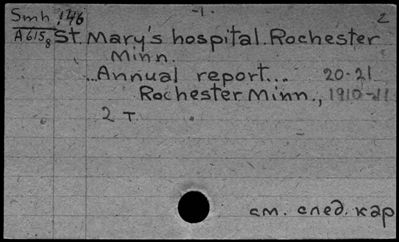 -1.
2
Smh :46
A615 8 St. Mary's hospital. Rochester
Minn.
...Annual report... 20-21
Rochester Minn., 1910-11
2 т.
см. след. кар